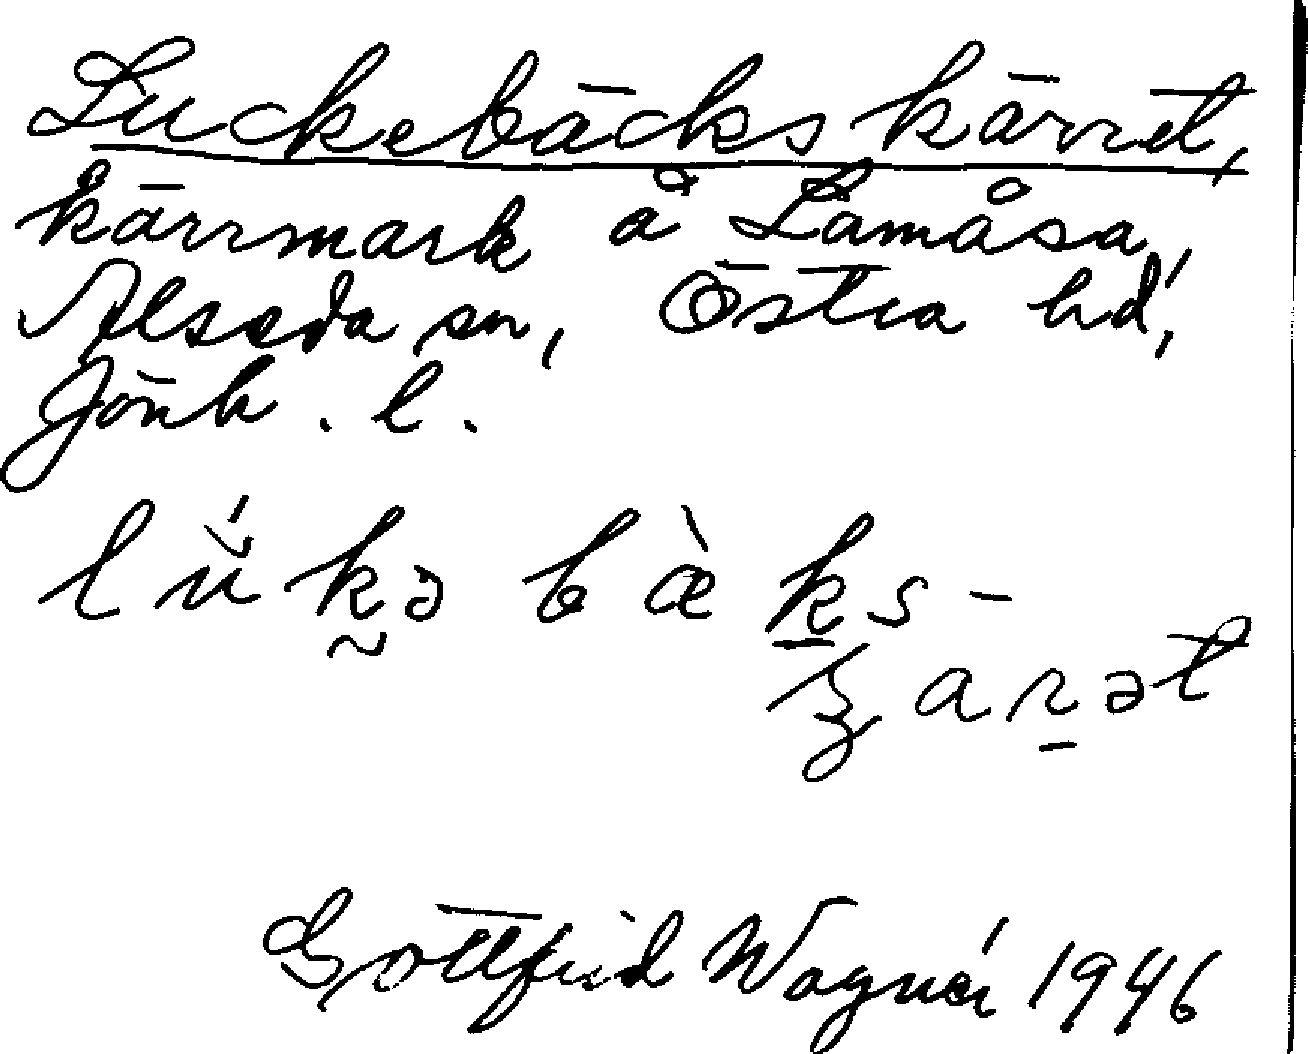 Luckebäckskärret,
kärrmark å Lamåsa,
Alseda sn, Östra hd,
Jönk. l.
lú̆k̰ə bæ̀ḵs-
ꞩaṟət
Gottfrid Wagnér 1946